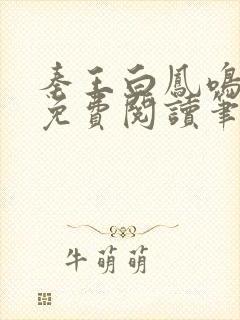 秦王白鳳鳴
免費閱讀筆
牛萌萌